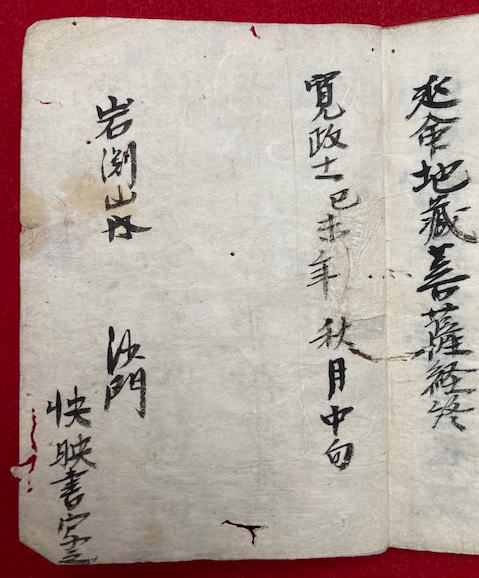 延命地蔵菩薩経終
寛政十一己未年 秋月中旬
岩渕山 沙門
快映書写之